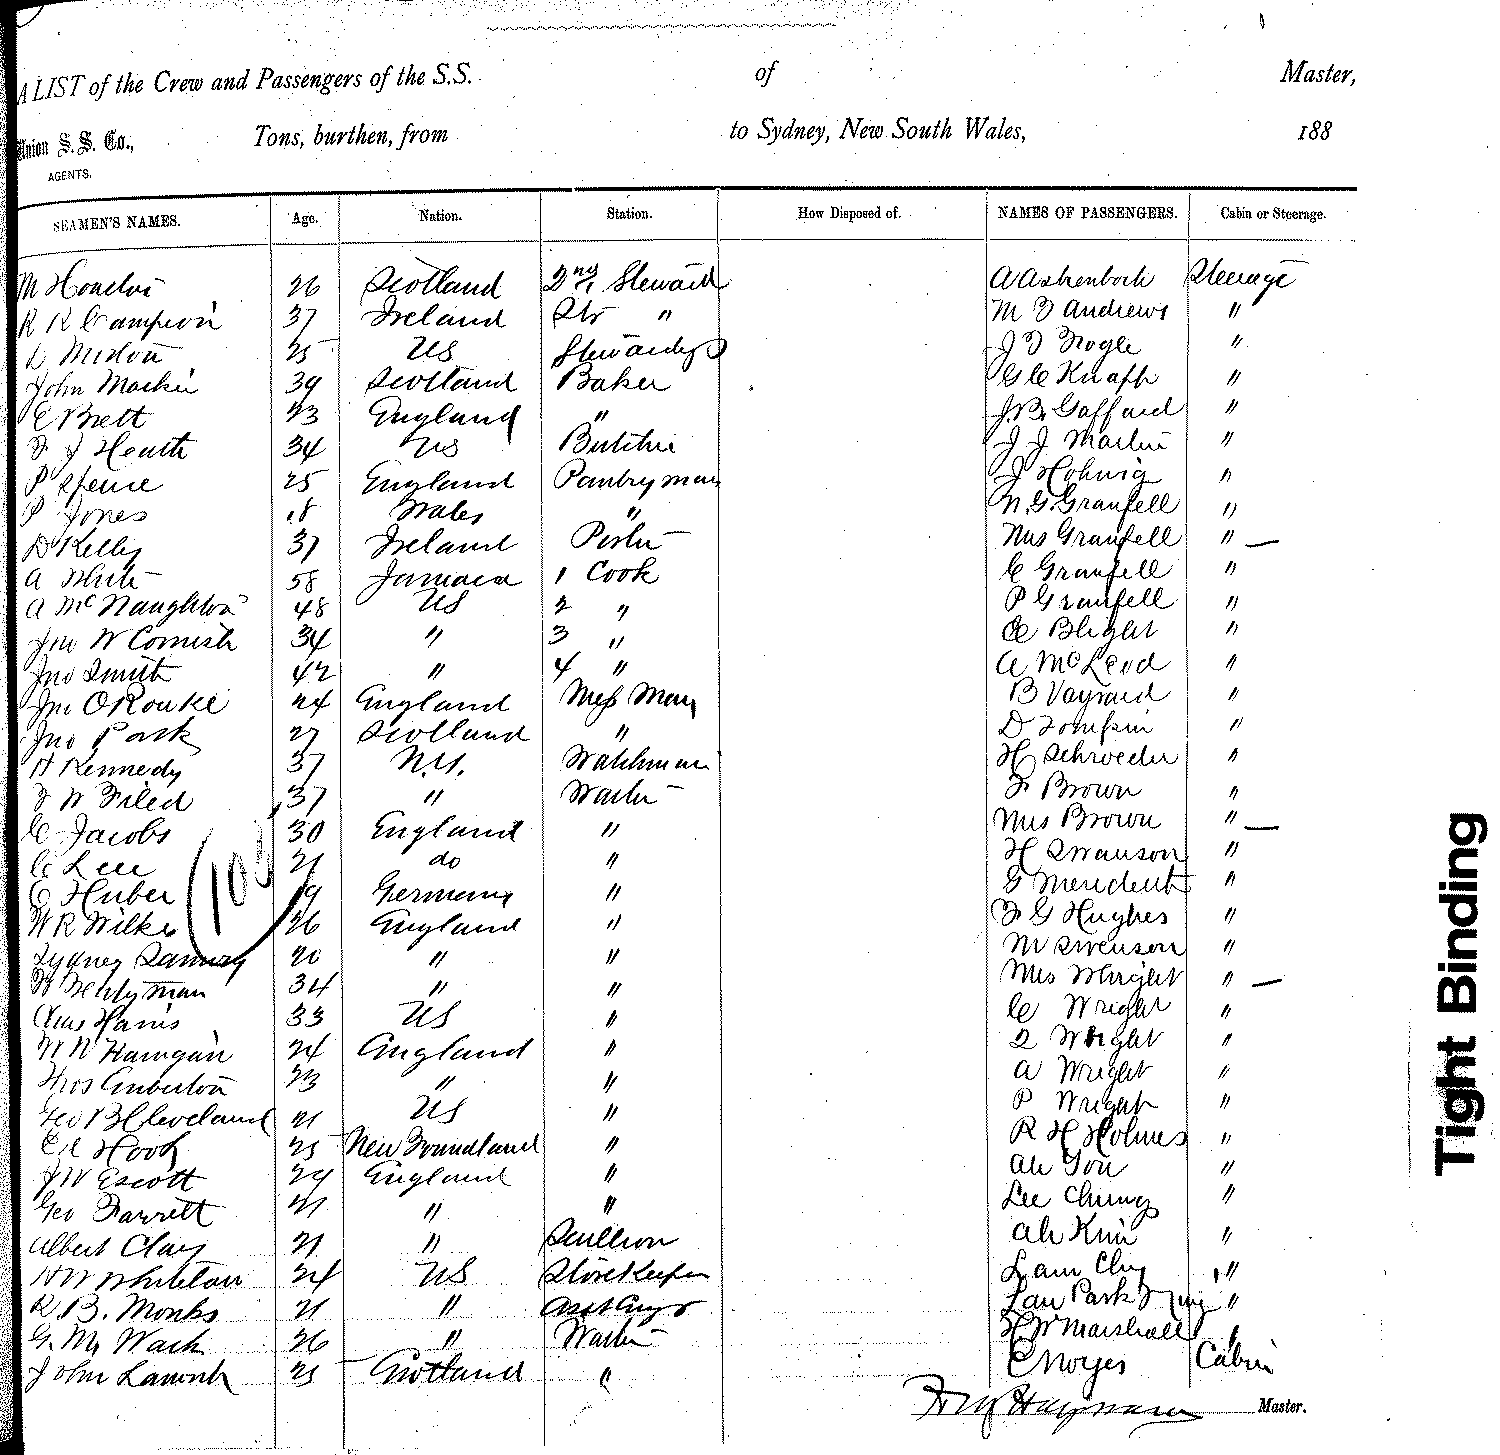 A LIST of the Crew and Passengers of the S.S. of Master,
Union S. S. Co., Tons, burthen, from to Sydney, New South Wales, 188
AGENTS.
SEAMEN'S NAMES. Age. Nation. Station. How Disposed of. NAMES OF PASSENGERS. Cabin or Steerage.
M 26 Scotland 2nd Steward A Askenbock Steerage
R R Campion 37 Ireland Str " M J Andrews "
25 US Stewardess J D "
John Mackie 39 Scotland Baker G C Knapp "
C Brett 23 England " J. B. Gaffard "
F J Heath 34 US Butcher J J Martin "
P Spence 25 England Pantryman J Hohnig "
P Jones 18 Wales " N. G. Granfell "
D Kelly 37 Ireland Porter Mrs Granfell " —
A White 58 Jamaica 1 Cook C Granfell "
A McNaughton 48 US 2 " P Granfell "
Jno W Cornish 34 " 3 " C Blight "
Jno Smith 42 " 4 " A McLeod "
Jno O'Rouke 24 England Mess Man B "
Jno Park 27 Scotland " D Tompkin "
H Kennedy 37 N.Y. Watchman H Schroeder "
F W Filed 37 " Waiter F Brown "
C Jacobs 30 England " Mrs Brown " —
C Lee 21 do " H Swanson "
C Huber 19 Germany " G "
W R Wilkes 26 England " F G Hughes "
Sydney 20 " " M Swenson "
34 " " Mrs Wright " —
Chas Harris 33 US " C Wright "
W N Hanigan 24 England " Wright "
Thos 23 " " A Wright "
Geo B Cleveland 21 US " P Wright "
Hook 25 New Foundland " R H Holmes "
J W Escott 29 England " Ah Gou "
Geo Farrett 21 " " Lee Chung "
Albert Clay 21 " Scullion Ah Kim "
H W Whiteton 24 US Storekeeper Lam Chy "
R. B. Monks 21 " Lau Park "
G. M. Wack 26 " Waiter H W Marshall "
John Lamont 25 Scotland " C Noyes Cabin
Master.
Tight Binding